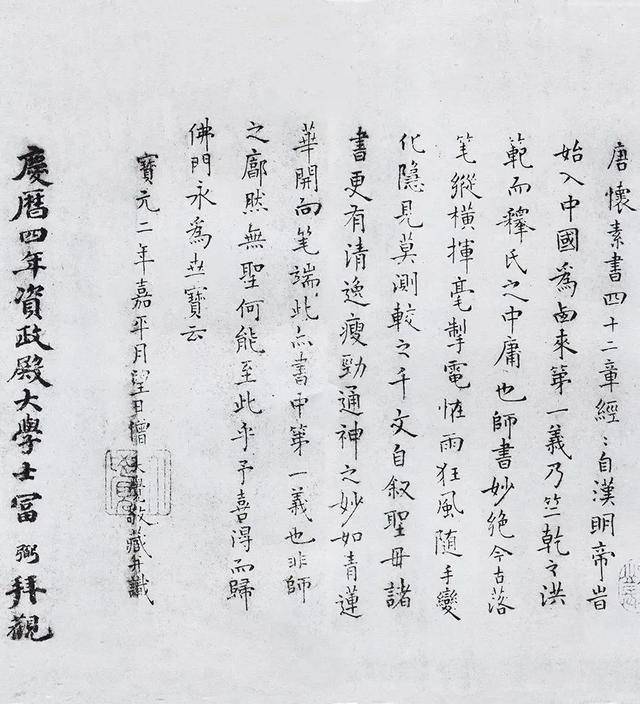 唐懷素書四十二章經〻自漢明帝旹
始入中國為卥來第一義乃竺乾之洪
範而釋氏之中庸也師書妙絶今古落
笔縱橫揮毫掣電恠雨狂風隨手變
化隱見莫測較之千文自叙聖母諸
書更有清逸瘦勁通神之妙如青蓮
華開向笔端此亦書中第一義也非師
之廓然無聖何能至此乎予喜得而歸
佛門永為世寶云
寶元二年嘉平月望日僧大覺敬藏并識
慶曆四年資政殿大學士富弼拜觀